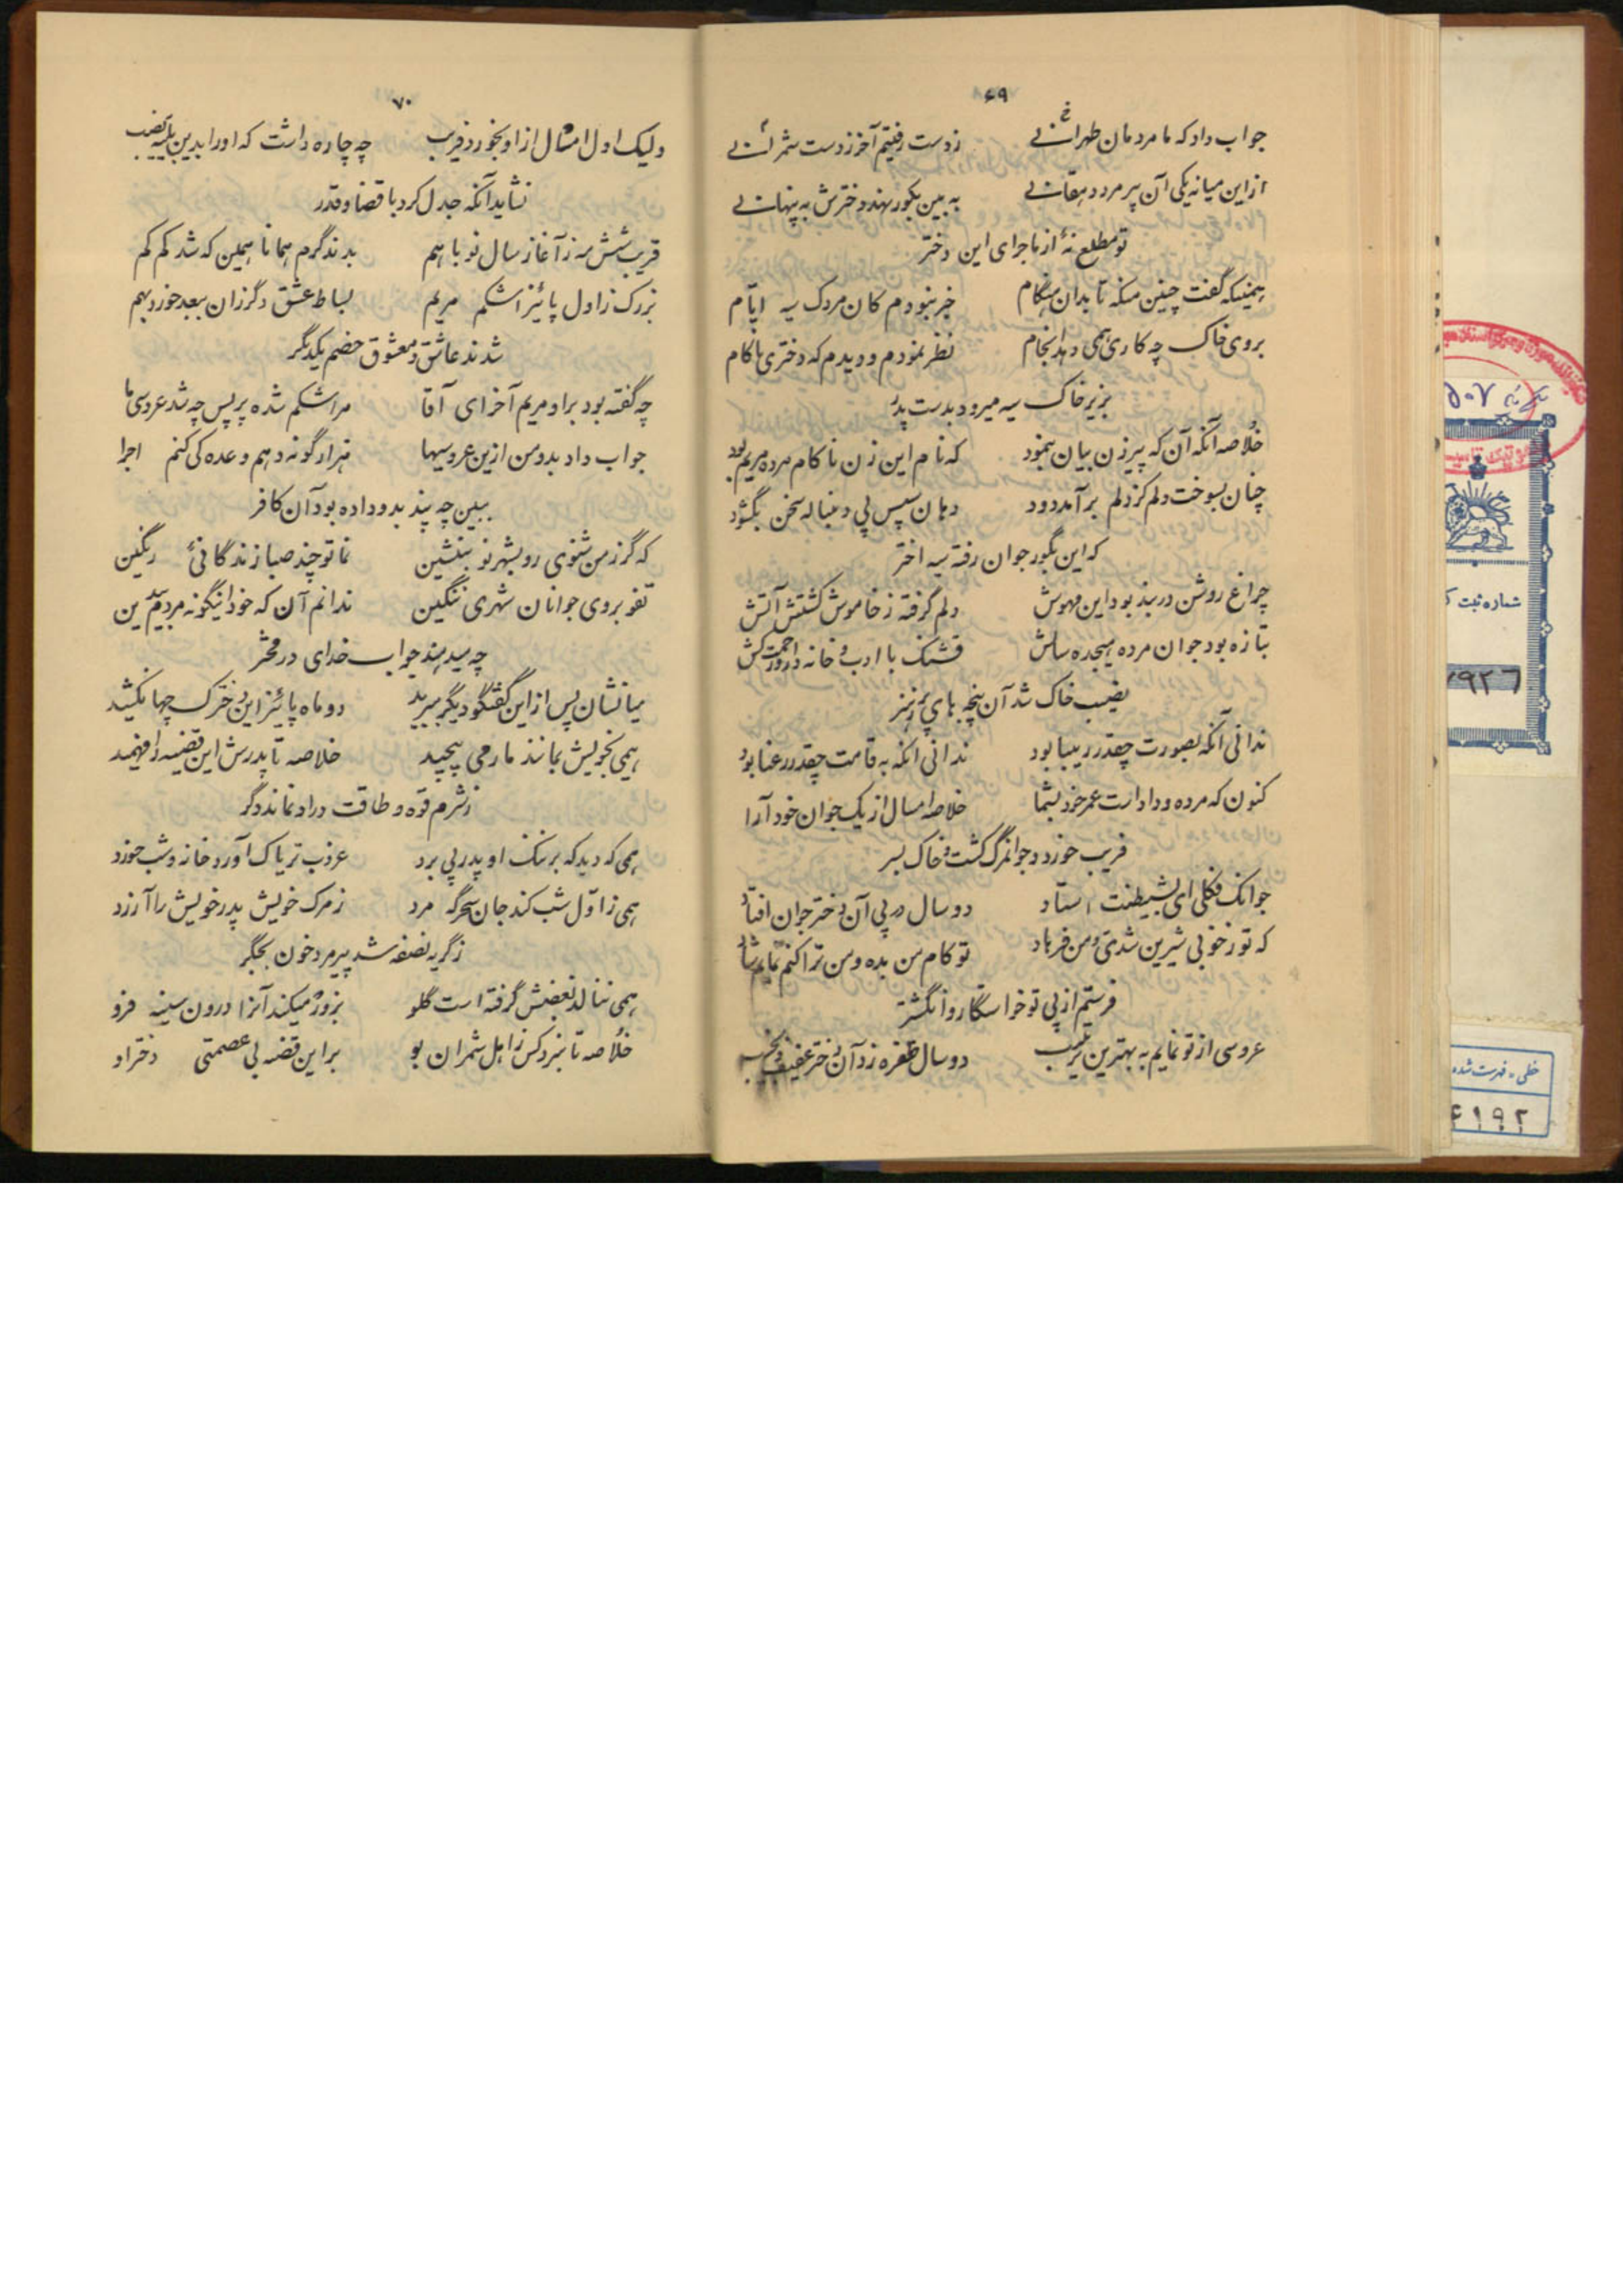 ۶۹
جواب داد که ما مردمان طهرانی زدست رفتیم آخر زدست شمرانی
از این میانه یکی آن پیر مرد دهقانی به بین بگور نهد دخترش به پنهانی
تو مطلع نهٔ از ماجرای این دختر
همینکه گفت چنین منکه تا بدان هنگام خبر نبودم کان مردک سیه ایام
بروی خاک چه کاری همی دهد انجام نظر نمودم و دیدم که دختری ناکام
بزیر خاک سیه میرود بدست پدر
خلاصه آنکه آن که پیرزن بیان بنمود که نام این زن ناکام مرده مریم بود
چنان بسوخت دلم کز دلم برآمد دود دهان سپس پی دنباله سخن بگشود
که این بگور جوان رفته سیه اختر
چراغ روشن دربند بود این مهوش دلم گرفته ز خاموش گشتنش آتش
بتازه بود جوان مرده هیجده سالش قشنگ با ادب و خانه دار و زحمت کش
نصیب خاک شد آن پنجه های پر ز هنر
ندانی آنکه بصورت چقدر زیبا بود ندانی انکه به قامت چقدر رعنا بود
کنون که مرده و داد است عمر خود بشما خلاصه امسال از یک جوان خود آرا
فریب خورد و جوانمرگ گشت و خاک بسر
جوانک فکلی ای بشیطنت استاد دو سال در پی آن دختر جوان افتاد
که تو ز خوبی شیرین شدی و من فرهاد تو کام من بده و من ترا کنم
فرستم از پی تو خواستگار و انگشتر
عروسی از تو نمایم به بهترین ترتیب دو سال طفره زد آن دختر عفیف و نجیب
۷۰
ولیک اول امسال از او بخورد فریب چه چاره داشت که او را بدین بلیه نصیب
نشاید آنکه جدل کرد با قضا و قدر
قریب شش مه ز آغاز سال نو باهم بدند گرم همانا همین که شد کم کم
بزرگ ز اول پائیز اشکم مریم بساط عشق دگرزان ببعد خورد بهم
شدند عاشق و معشوق خصم یکدیگر
چه گفته بود بر او مریم آخر ای آقا مرا شکم شده پر پس چه شد عروسی ما
جواب داد بدو من ازین عروسیها هزار گونه دهم وعده کی کنم اجرا
ببین چه پند بدو داده بود آن کافر
که گر ز من شنوی رو بشهر نو بنشین نما تو چند صبا زندگانی رنگین
تفو بروی جوانان شهری ننگین ندانم آن که خود اینگونه مردم بی دین
چه میدهند جواب خدای در محشر
میانشان پس از این گفتگو دیگر ببرید دو ماه پائیز این دخترک چها نکشید
همی بخویش بمانند مار می پیچید خلاصه تا پدرش این قضیه را فهمید
ز شرم قوه و طاقت در او نماند دگر
همی که دید که بر ننگ او پدر پی برد غروب تریاک آورد خانه و شب خورد
همی ز اول شب کند جان سحرگه مرد ز مرگ خویش پدر خویش را آزرد
ز گریه نصفه شد پیر مرد خون بجگر
همی ننالد بغضش گرفته است گلو بزور میکند آنرا درون سینه فرو
خلاصه تا نبرد کس ز اهل شمران بو بر این قضیه بی عصمتی دختر او
شماره ثبت ک
۷۹۲۶
خطی - فهرست شده
۶۱۹۲